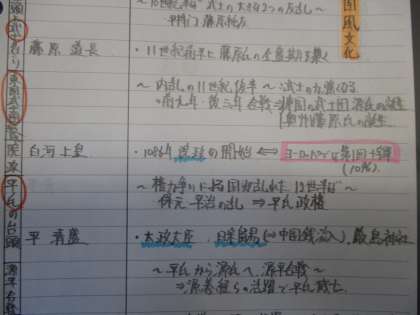 国風文化
平将門 藤原純友
藤原道長
・11世紀前半に藤原氏の全盛期を築く
～内乱の11世紀後半～ 武士の力強くなる
・前九年・後三年合戦⇒東国の武士団源氏の誕生
奥州藤原氏の誕生
白河上皇
・1086年 院政の開始 ⇔ ヨーロッパでは第1回十字軍
(1096)
～権力争いによる国力乱れた12世紀～
保元・平治の乱 ⇒ 平氏政権
平氏の台頭
平清盛
・太政大臣、日宋貿易(⇒中国銭流入)、厳島神社
～平氏から源氏へ、源平合戦～
⇒源義経らの活躍で平氏滅亡
源平合戦